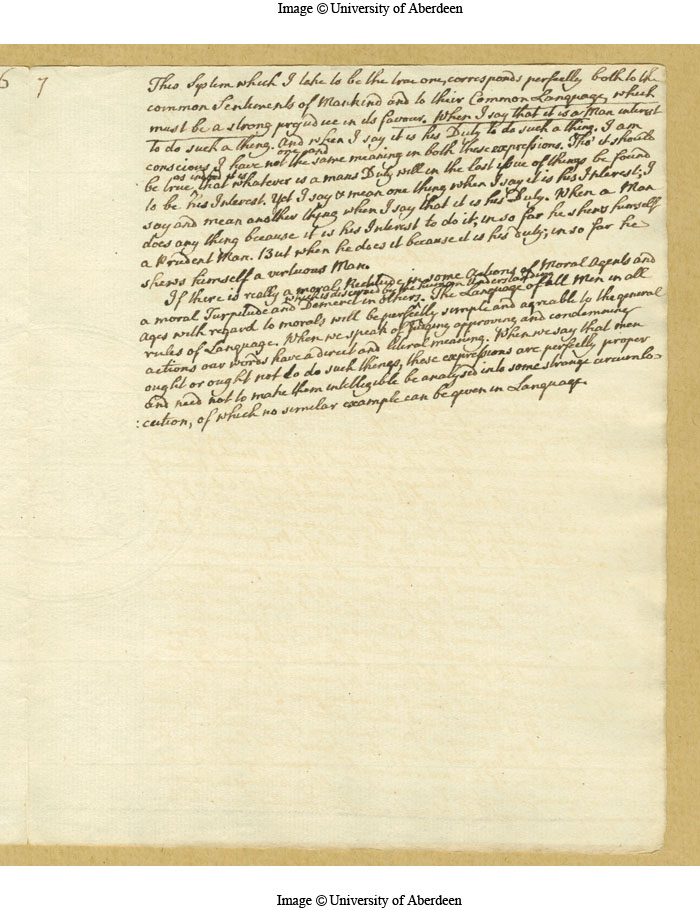 Image © University of Aberdeen
6 7
This System which I take to be the true one, corresponds perfectly both to the
common Sentiments of Mankind and to their Common Language, which
must be a strong prejudice in its favour. When I say that it is a Man interest
to do such a thing. And when I say it is his Duty to do such a thing. I am
conscious I have not the same meaning in both these expressions. Tho' it should
one and
be true that whatever is a mans Duty will in the last issue of things be found
as indeed it is
to be his Interest. Yet I say & mean one thing when I say it is his Interest; I
say and mean another thing when I say that it is his Duty. When a Man
does any thing because it is his Interest to do it; in so far he shews himself
a Prudent Man. But when he does it because it is his duty; in so far he
shews himself a virtuous Man.
If there is really a moral Rectitude in some Actions of Moral Agents and
a moral Turpitude and Demerit in others. The Language of all Men in all
which is discerned by the human Understanding
ages with regard to morals will be perfectly simple and agreable to the general
rules of Language. When we speak of judging approving and condemning
actions our words have a direct and literal meaning. When we say that men
ought or ought not to do such things, these expressions are perfectly proper
and need not to make them intelligible be analysed into some strange circumlo-
:cution, of which no similar example can be given in Language.
Image © University of Aberdeen